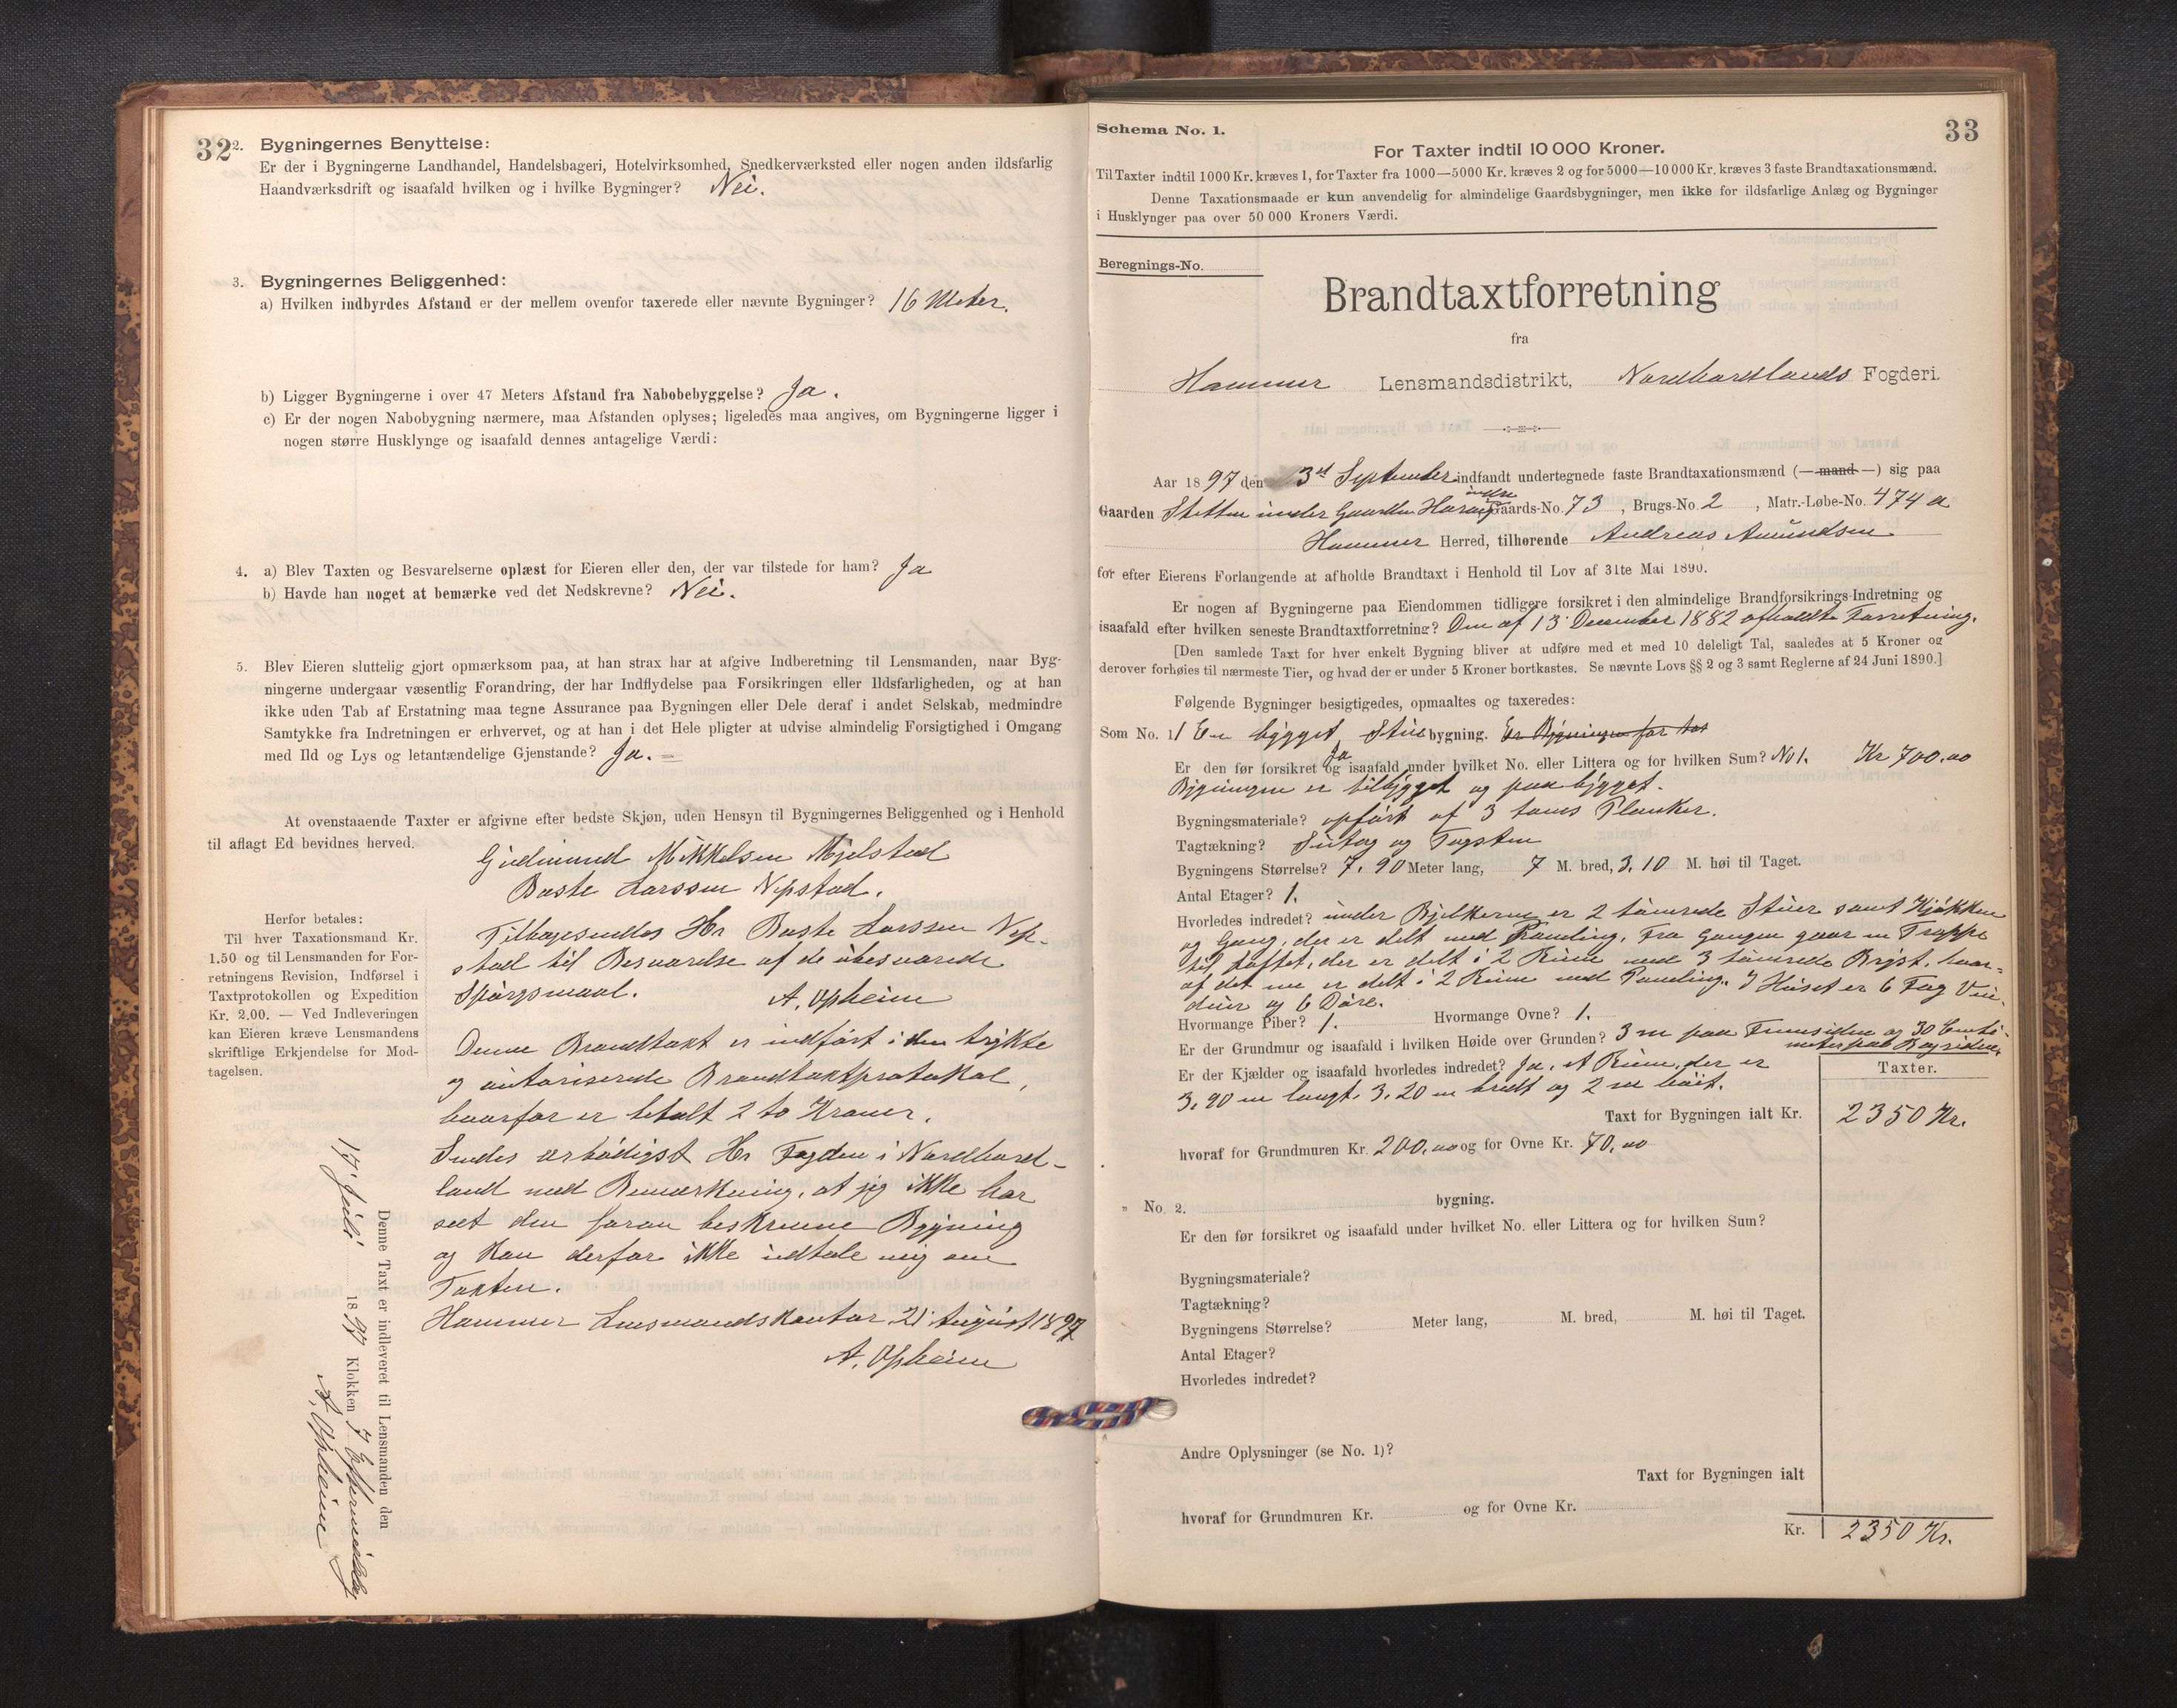 32
2. Bygningernes Benyttelse:
Er der i Bygningerne Landhandel, Handelsbageri, Hotelvirksomhed, Snedkerværksted eller nogen anden ildsfarlig
Haandværksdrift og isaafald hvilken og i hvilke Bygninger? Nei.
3. Bygningernes Beliggenhed:
a) Hvilken indbyrdes Afstand er der mellem ovenfor taxerede eller nævnte Bygninger? 16 Meter.
b) Ligger Bygningerne i over 47 Meters Afstand fra Nabobebyggelse? Ja.
c) Er der nogen Nabobygning nærmere, maa Afstanden oplyses; ligeledes maa angives, om Bygningerne ligger i
nogen større Husklynge og isaafald dennes antagelige Værdi:
4. a) Blev Taxten og Besvarelserne oplæst for Eieren eller den, der var tilstede for ham? Ja
b) Havde han noget at bemærke ved det Nedskrevne? Nei.
5. Blev Eieren sluttelig gjort opmærksom paa, at han strax har at afgive Indberetning til Lensmanden, naar Byg-
ningerne undergaar væsentlig Forandring, der har Indflydelse paa Forsikringen eller Ildsfarligheden, og at han
ikke uden Tab af Erstatning maa tegne Assurance paa Bygningen eller Dele deraf i andet Selskab, medmindre
Samtykke fra Indretningen er erhvervet, og at han i det Hele pligter at udvise almindelig Forsigtighed i Omgang
med Ild og Lys og letantændelige Gjenstande? Ja.
At ovenstaaende Taxter er afgivne efter bedste Skjøn, uden Hensyn til Bygningernes Beliggenhed og i Henhold
til aflagt Ed bevidnes herved.
Gudmund Mikkelsen Mjelstad
Baste Larssen Nepstad.
Herfor betales:
Til hver Taxationsmand Kr.
1.50 og til Lensmanden for For-
retningens Revision, Indførsel i
Taxtprotokollen og Expedition
Kr. 2.00. — Ved Indleveringen
kan Eieren kræve Lensmandens
skriftlige Erkjendelse for Mod-
tagelsen.
Tilbagesendes Hr Baste Larssen Nep-
stad til Besvarelse af de ubesvarede
Spørgsmaal. A. Opheim
Denne Brandtakt er indført i den trykte
og autoriserede Brandtaktprotokol,
hvorfor er betalt 2 to Kroner.
Sendes ærbødigst Hr Fogden i Nordhord-
land med Bemærkning, at jeg ikke har
seet den foran beskrevne Bygning
og kan derfor ikke udtale mig om
Takten.
Hammer Lensmandskontor 21 August 1897
A. Opheim
Denne Taxt er indleveret til Lensmanden den
17 Juli 1897 Klokken 7 Eftermiddag
A. Opheim
33
Schema No. 1.
For Taxter indtil 10 000 Kroner.
Til Taxter indtil 1000 Kr. kræves 1, for Taxter fra 1000—5000 Kr. kræves 2 og for 5000—10 000 Kr. kræves 3 faste Brandtaxationsmænd.
Denne Taxationsmaade er kun anvendelig for almindelige Gaardsbygninger, men ikke for ildsfarlige Anlæg og Bygninger
i Husklynger paa over 50 000 Kroners Værdi.
Beregnings-No.
Brandtaxtforretning
fra
Hammer Lensmandsdistrikt, Nordhordlands Fogderi.
Aar 1897 den 3d September indfandt undertegnede faste Brandtaxationsmænd (—mand—) sig paa
Gaarden Sletten under Gaarden indre Gaards-No. 73, Brugs-No. 2, Matr.-Løbe-No. 474 a
Hammer Herred, tilhørende Andreas Amundsen
for efter Eierens Forlangende at afholde Brandtaxt i Henhold til Lov af 31te Mai 1890.
Er nogen af Bygningerne paa Eiendommen tidligere forsikret i den almindelige Brandforsikrings-Indretning og
isaafald efter hvilken seneste Brandtaxtforretning? Den af 13 December 1882 afholdte Forretning.
[Den samlede Taxt for hver enkelt Bygning bliver at udføre med et med 10 deleligt Tal, saaledes at 5 Kroner og
derover forhøies til nærmeste Tier, og hvad der er under 5 Kroner bortkastes. Se nævnte Lovs §§ 2 og 3 samt Reglerne af 24 Juni 1890.]
Følgende Bygninger besigtigedes, opmaaltes og taxeredes:
Som No. 1 En bygget Stuebygning. Er Bygningen før tax
Er den før forsikret og isaafald under hvilket No. eller Littera og for hvilken Sum? Ja No 1. Kr 700.00
Bygningen er tilbygget og paa bygget.
Bygningsmateriale? opført af 3 toms Planker.
Tagtækning? Sutag og Tagsten
Bygningens Størrelse? 7.90 Meter lang, 7 M. bred, 3.10 M. høi til Taget.
Antal Etager? 1.
Hvorledes indredet? under Bjelkerne er 2 tømrede Stuer samt Kjøkken
og Gang, der er delt med Paneling. Fra Gangen gaar en Trappe
til Loftet, der er delt i 2 Rum med 3 tømrede Bryst, hvor-
af det ene er delt i 2 Rum med Paneling. I Huset er 6 Fag Vin-
duer og 6 Døre.
Hvormange Piber? 1. Hvormange Ovne? 1.
Er der Grundmur og isaafald i hvilken Høide over Grunden? 3 m paa Fremsiden og 30 Centi-
meter paa Bagsiden.
Er der Kjælder og isaafald hvorledes indredet? Ja, et Rum, der er
3,90 m langt, 3,20 m bredt og 2 m høit.
Taxter.
Taxt for Bygningen ialt Kr. 2350 Kr.
hvoraf for Grundmuren Kr. 200.00 og for Ovne Kr. 70.00
" No. 2. bygning.
Er den før forsikret og isaafald under hvilket No. eller Littera og for hvilken Sum?
Bygningsmateriale?
Tagtækning?
Bygningens Størrelse? Meter lang, M. bred, M. høi til Taget.
Antal Etager?
Hvorledes indredet?
Andre Oplysninger (se No. 1)?
Taxt for Bygningen ialt
hvoraf for Grundmuren Kr. og for Ovne Kr.
Kr. 2350 Kr.